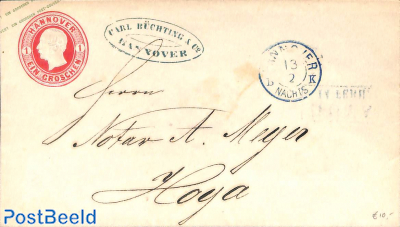 HANNOVER
1 1
EIN GROSCHEN
CARL RÜCHTING & Co
HANNOVER
HANNOVER
13
2
NACHTS
K
Herrn
Notar A. Meyer
Hoya
PostBeeld
€10,-